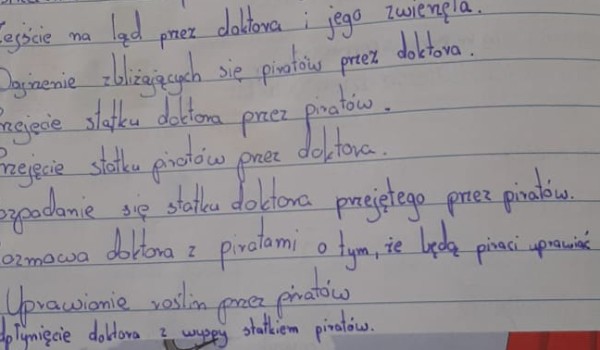 ejście na ląd przez doktora i jego zwierzęta.
Dojrzenie zbliżających się piratów przez doktora.
rzejęcie statku doktora przez piratów.
Przejęcie statku piratów przez doktora.
ozpadanie się statku doktora przejętego przez piratów.
ozmowa doktora z piratami o tym, że będą piraci uprawiać
Uprawianie roślin przez piratów
dpłynięcie doktora z wyspy statkiem piratów.